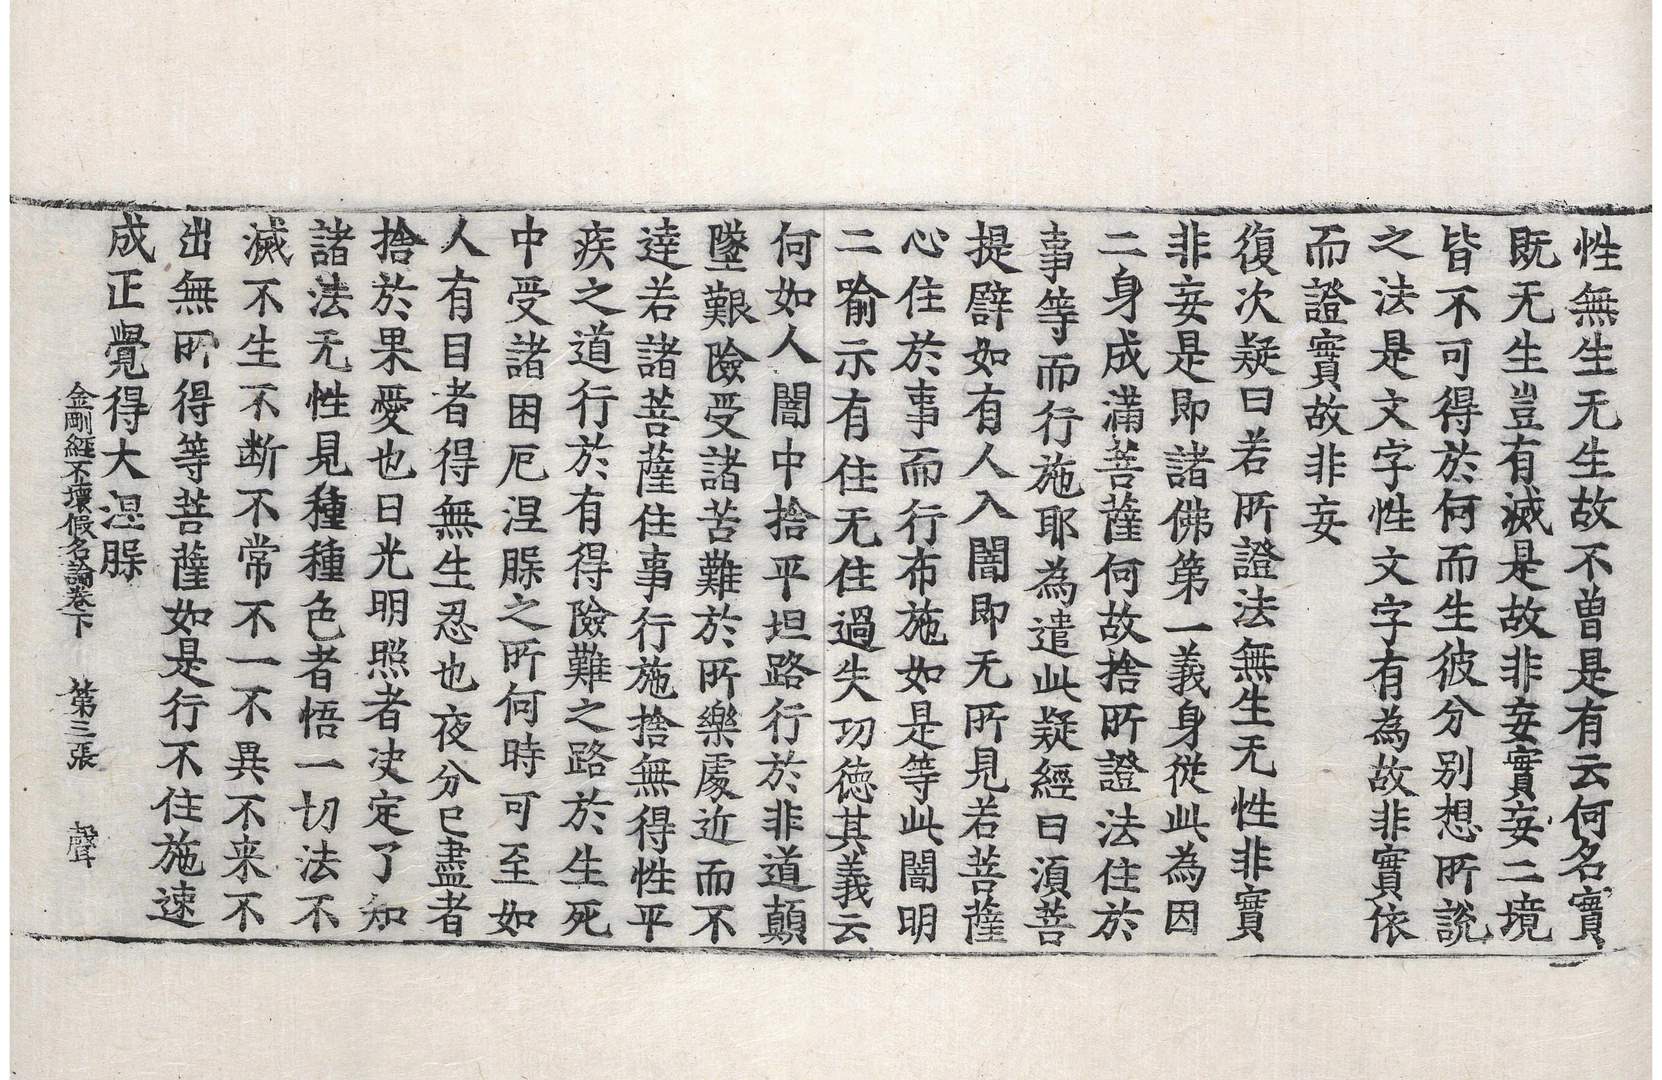 性無生无生故不曾是有云何名實
既无生豈有滅是故非妄實妄二境
皆不可得於何而生彼分別想所說
之法是文字性文字有為故非實依
而證實故非妄
復次疑曰若所證法無生无性非實
非妄是即諸佛第一義身從此為因
二身成滿菩薩何故捨所證法住於
事等而行施耶為遣此疑經曰湏菩
提譬如有人入闇即无所見若菩薩
心住於事而行布施如是等此闇明
二喻示有住无住過失功德其義云
何如人闇中捨平坦路行於非道顛
墜艱險受諸苦難於所樂處近而不
達若諸菩薩住事行施捨無得性平
疾之道行於有得險難之路於生死
中受諸困厄涅脲之所何時可至如
人有目者得無生忍也夜分已盡者
捨於果愛也日光明照者決定了知
諸法无性見種種色者悟一切法不
滅不生不断不常不一不異不来不
出無所得等菩薩如是行不住施速
成正覺得大涅脲
金剛經不壞假名論卷下 第三張 聲